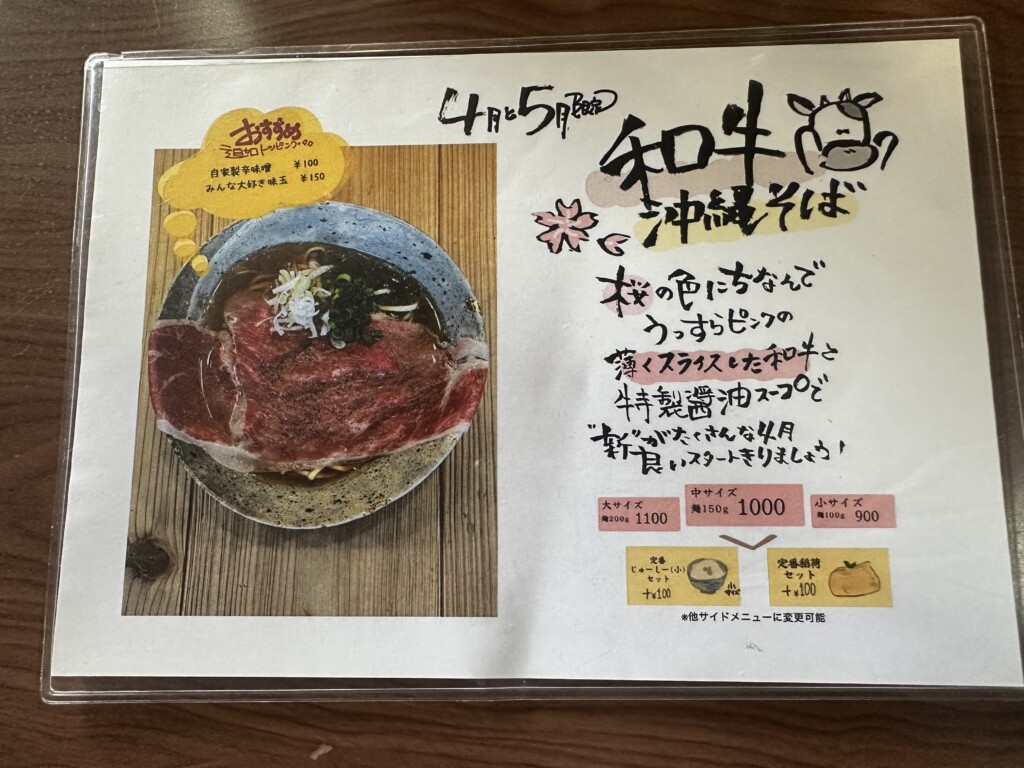 4月と5月限定
和牛
沖縄そば
おすすめ
追加トッピング
自家製辛味噌 ¥100
みんな大好き味玉 ¥150
桜の色にちなんで
うっすらピンクの
薄くスライスした和牛と
特製醤油スープで
"新"がたくさんな4月
良いスタートきりましょう!
大サイズ
麺200g 1100
中サイズ
麺150g 1000
小サイズ
麺100g 900
定番
じゅーしー(小)
セット
+¥100
定番稲荷
セット
+¥100
※他サイドメニューに変更可能